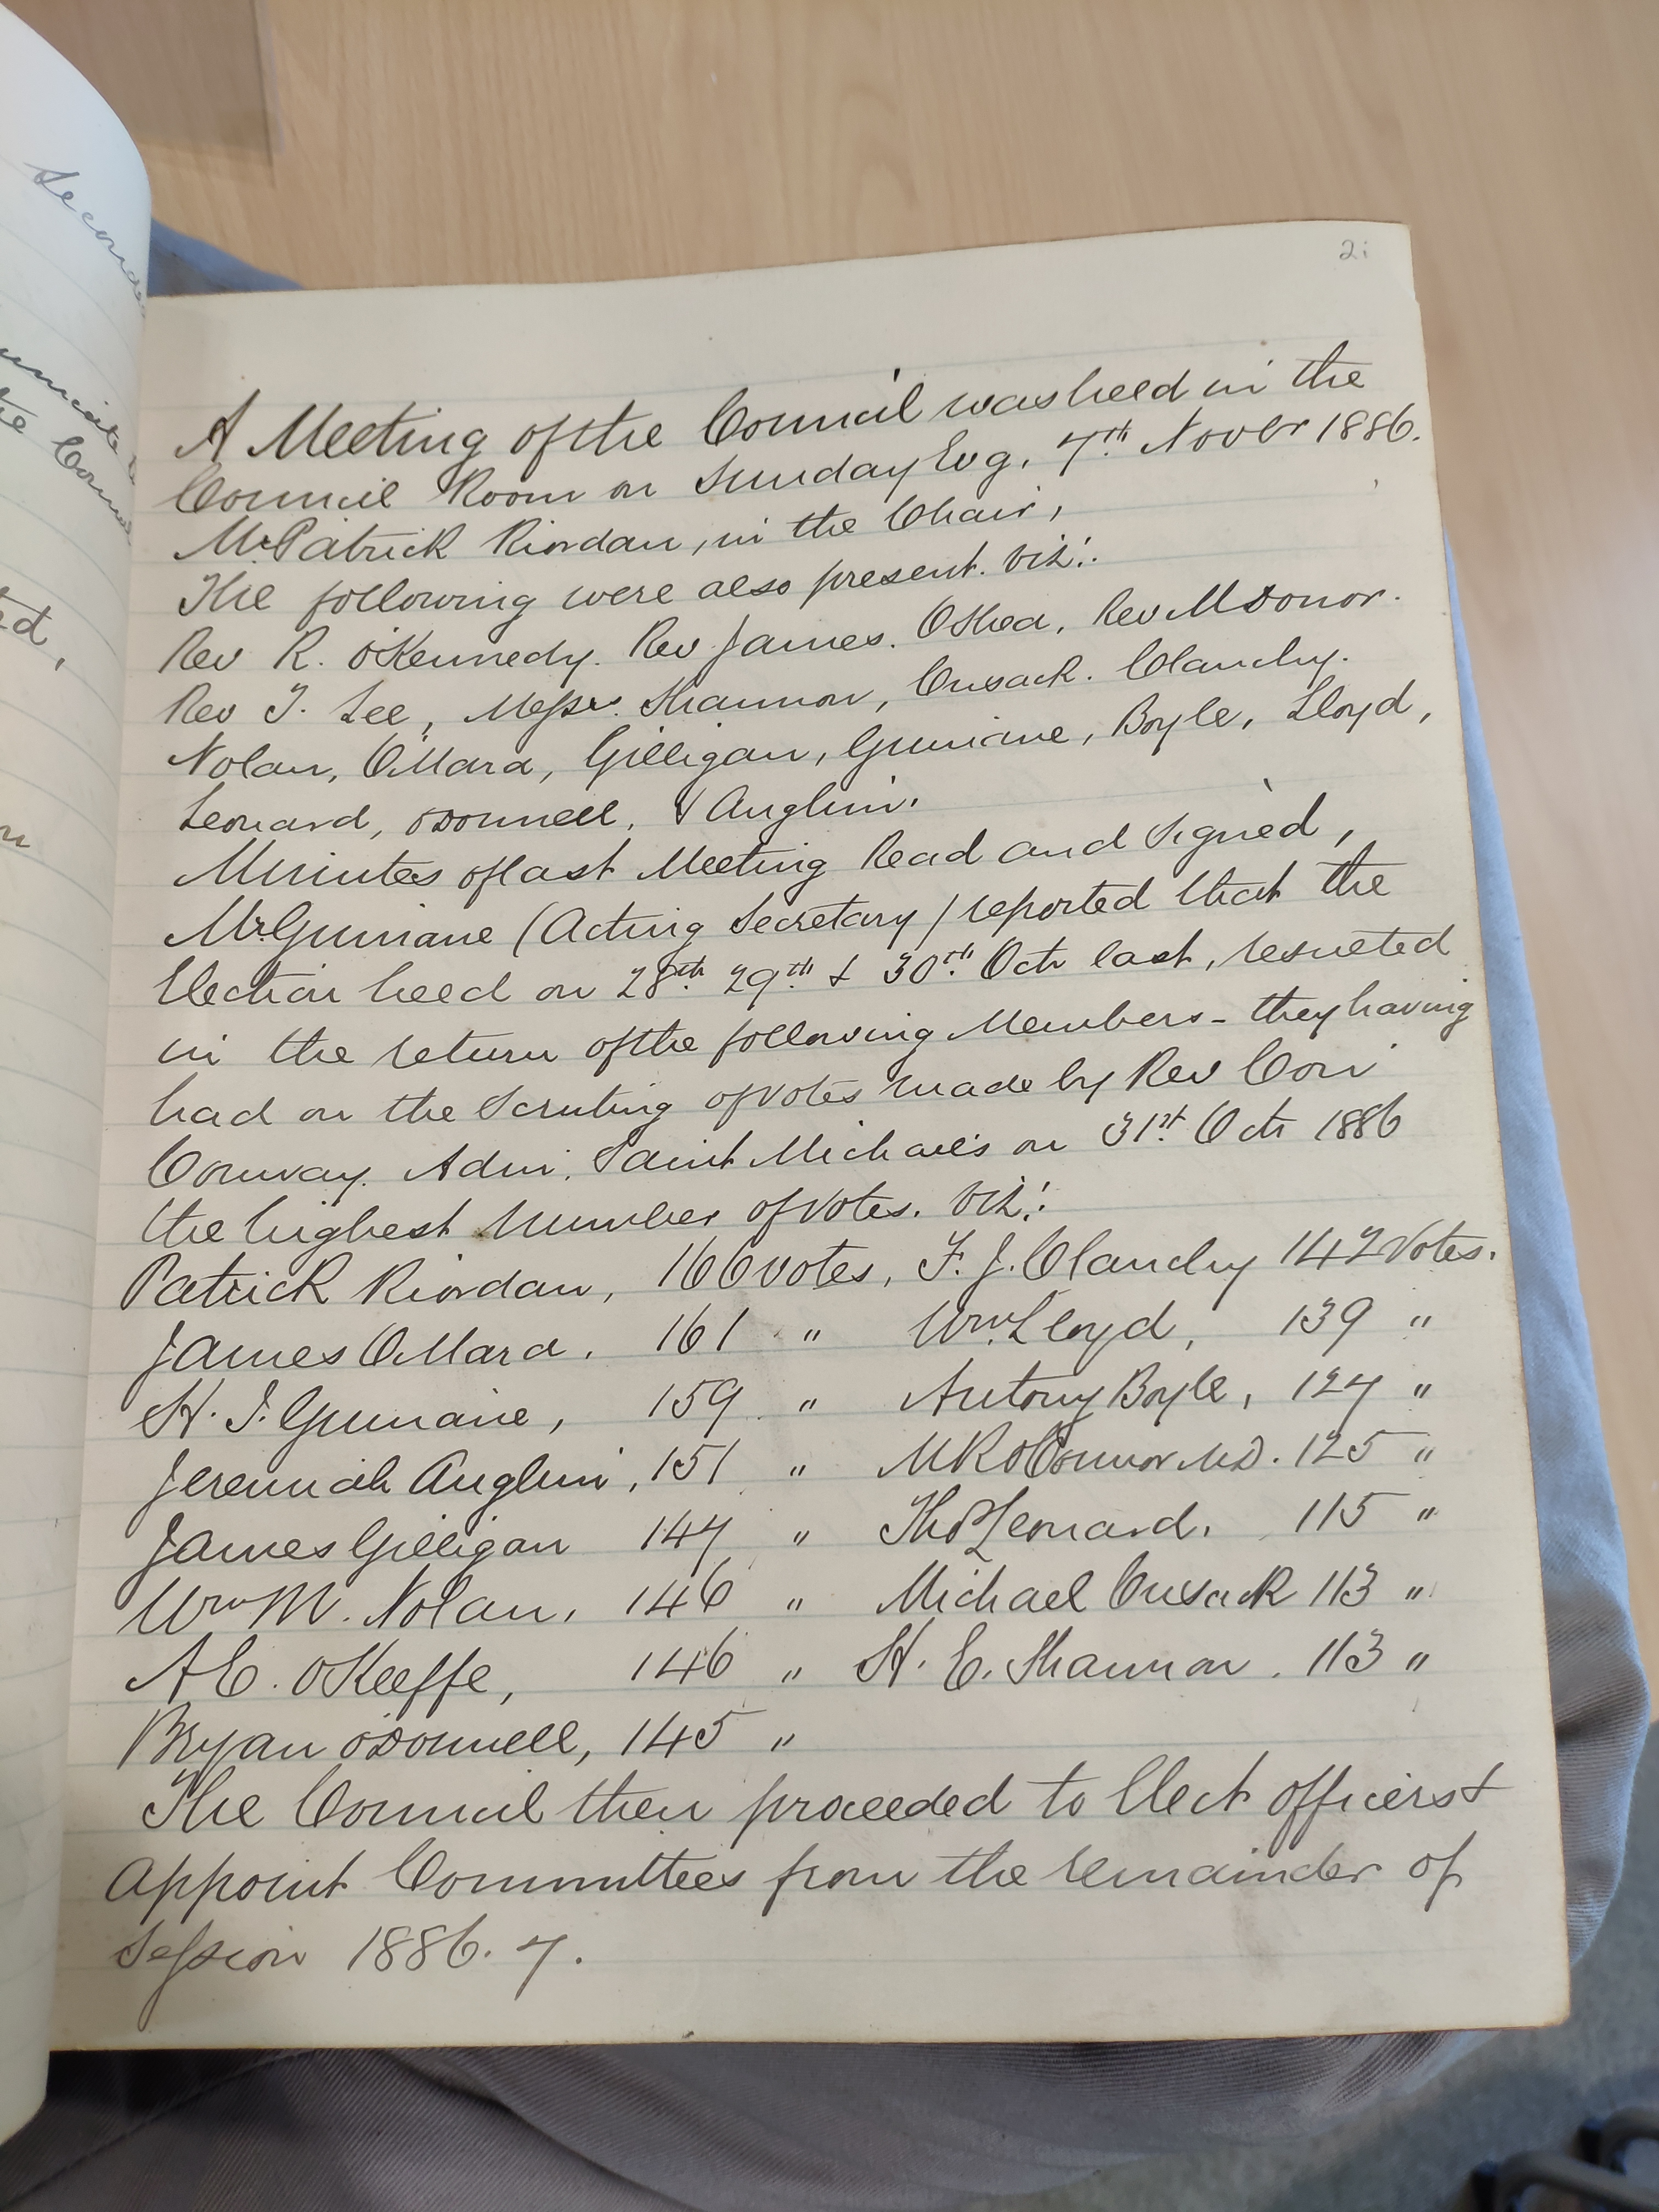 21
A Meeting of the Council was held in the
Council Room on Sunday Evg. 7th Novbr 1886.
Mr Patrick Riordan, in the Chair,
The following were also present. viz:.
Rev R. O'Kennedy. Rev James. O'Shea, Rev M Donor.
Rev T. Lee, Messrs. Shannon, Cusack. Clanchy.
Nolan, O'Mara, Gilligan, Guinane, Boyle, Lloyd,
Leonard, O'Donnell, & Anglim.
Minutes of last Meeting Read and Signed,
Mr. Guinane (Acting Secretary) reported that the
Election held on 28th 29th & 30th Octr last, resulted
in the return of the following Members - they having
had on the Scrutiny of votes made by Rev Cori
Conway. Adm. Saint Michael's on 31st Octr 1886
the highest number of votes. viz:.
Patrick Riordan, 166 votes, F. J. Clanchy 142 Votes.
James O'Mara, 161 " Wm Lloyd, 139 "
H. J. Guinane, 159 " Antony Boyle, 127 "
Jeremiah Anglim, 151 " M R O'Connor M.D. 125 "
James Gilligan 147 " Thos Leonard, 115 "
Wm M. Nolan, 146 " Michael Cusack 113 "
A C. O'Keeffe, 146 " H. E. Shannon. 113 "
Bryan O'Donnell, 145 "
The Council then proceeded to Elect officers &
appoint Committees from the remainder of
Session 1886. 7.